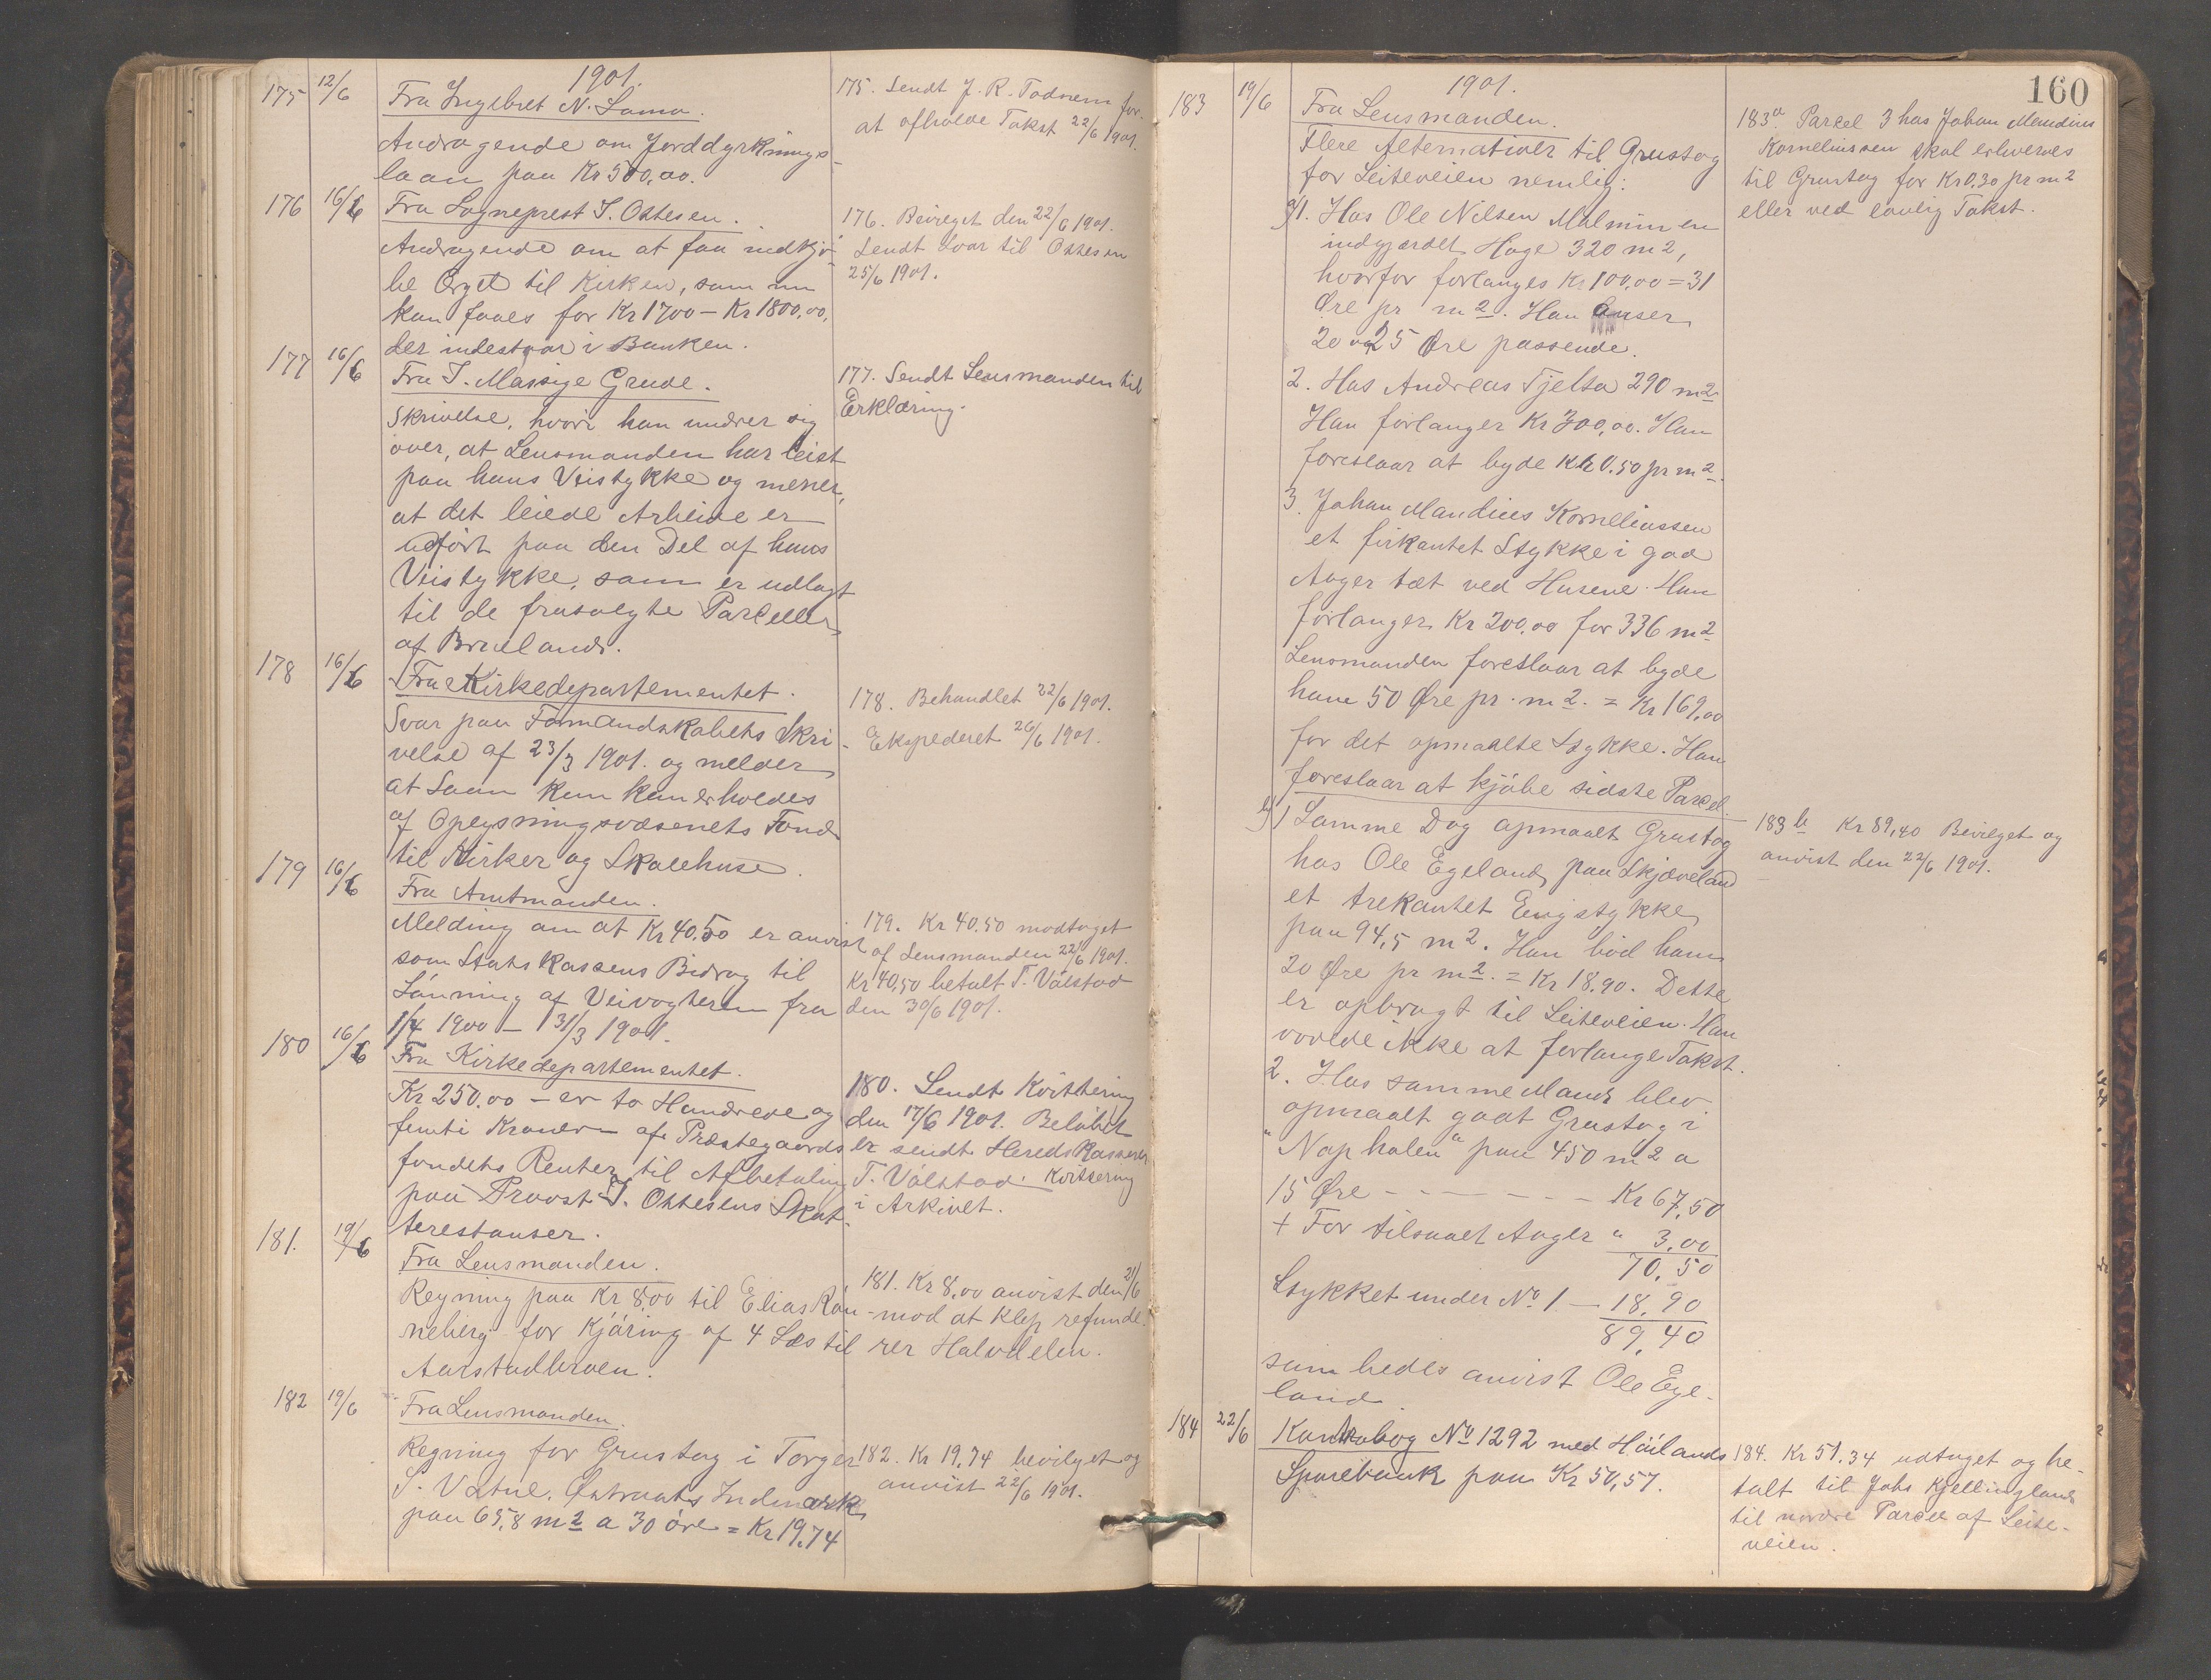 1901.
175 12/6 Fra Ingebret N. Lama.
Andragende om Jorddyrknings-
laan paa Kr 500,00.
175. Sendt J. R. Todnem for
at afholde Takst 22/6 1901.
176 16/6 Fra Sogneprest S. Ottesen.
Andragende om at faa indkjö-
be Orgel til Kirken, som nu
kan faaes for Kr 1700 - Kr 1800,00,
der indestaar i Banken.
176. Bevilget den 22/6 1901.
Sendt svar til Ottesen
25/6 1901.
177 16/6 Fra S. Massige Grude.
Skrivelse, hvori han undrer sig
over, at Lensmanden har leiet
paa hans Veistykke og mener,
at det leiede Arbeide er
udfört paa den Del af hans
Veistykke, som er udlagt
til de frasolgte Parceller
af Bruland.
177. Sendt Lensmanden til
Erklæring.
178 16/6 Fra Kirkedepartementet.
Svar paa Formandskabets Skri-
velse af 23/3 1901. og melder
at Laan kun kan erholdes
af Oplysningsvæsenets Fond
til Kirker og Skolehuse.
178. Behandlet 22/6 1901.
Ekspederet 26/6 1901.
179 16/6 Fra Amtmanden.
Melding om at Kr 40.50 er anvist
som Statskassens Bidrag til
Lönning af Veivogteren fra
1/4 1900 - 31/3 1901.
179. Kr 40.50 modtaget
af Lensmanden 22/6 1901.
Kr 40,50 betalt T. Válstad
den 30/6 1901.
180 16/6 Fra Kirkedepartementet.
Kr 250.00 - er to Hundrede og
femti Kroner - af Præstegaards
fondets Renter til Afbetaling
paa Provst S. Ottesens Skat-
terestanser.
180. Sendt Kvittering
den 17/6 1901. Belöbet
er sendt Heredskasserer
T. Válstad. Kvittering
i Arkivet.
181. 19/6 Fra Lensmanden.
Regning paa Kr 8,00 til Elias Rón-
neberg for Kjöring af 4 Læs til
Aarstadbroen.
181. Kr 8,00 anvist den 21/6
mod at Klep refunde-
rer Halvdelen.
182 19/6 Fra Lensmanden.
Regning for Grustag i Torger
S. Vatne, Östraats Indmark
paa 65,8 m2 a 30 öre = Kr 19.74
182. Kr 19,74 bevilget og
anvist 22/6 1901.
160
1901.
183 19/6 Fra Lensmanden.
Flere Alternativer til Grustag
for Leiteveien nemlig:
a) 1. Hos Ole Nilsen Malmin en
indgjærdet Hage 320 m2,
hvorfor forlanges Kr 100,00 = 31
Öre pr m2. Han anser
20 og 25 Öre passende.
2. Hos Andreas Tjelta 290 m2
Han forlanger Kr 300,00. Han
foreslaar at byde Kr 0.50 pr m2.
3. Johan Mandius Korneliussen
et firkantet Stykke i god
Ager tæt ved Husene. Han
forlanger Kr 200,00 for 336 m2
Lensmanden foreslaar at byde
ham 50 Öre pr. m2. = Kr 169,00
for det opmaalte Stykke. Han
foreslaar at kjöbe sidste Parcel.
183a. Parcel 3 hos Johan Mandius
Korneliussen skal erhverves
til Grustag for Kr 0.30 pr m2
eller ved lovlig Takst.
b) 1 Samme Dag opmaalt Grustag
hos Ole Egeland paa Skjæveland
et trekantet Engstykke
paa 94,5 m2. Han böd ham
20 Öre pr m2. = Kr 18.90. Dette
er opbragt til Leiteveien. Han
vovede ikke at forlange Takst.
2. Hos samme Mand blev
opmaalt godt Grustag i
"Naphalen" paa 450 m2 a
15 Öre - - - - - - - Kr 67,50
+ For tilsaaet Ager " 3,00
70,50
Stykket under No 1 - 18,90
89,40
som bedes anvist Ole Ege-
land.
183 b Kr 89,40 Bevilget og
anvist den 22/6 1901.
184 22/6 Kontrabog No 1292 med Höilands
Sparebank paa Kr 50,57.
184. Kr 51.34 udtaget og be-
talt til Johs Kjellingland
til nordre Parcel af Leite-
veien.